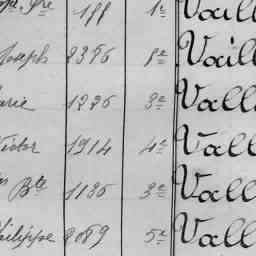 188 1e Vaill
Joseph 8356 8e Vaill
arie 1226 3e Vall
Victor 1914 4e Vall
Bte 1136 3e Vall
hilippe 8089 5e Vall